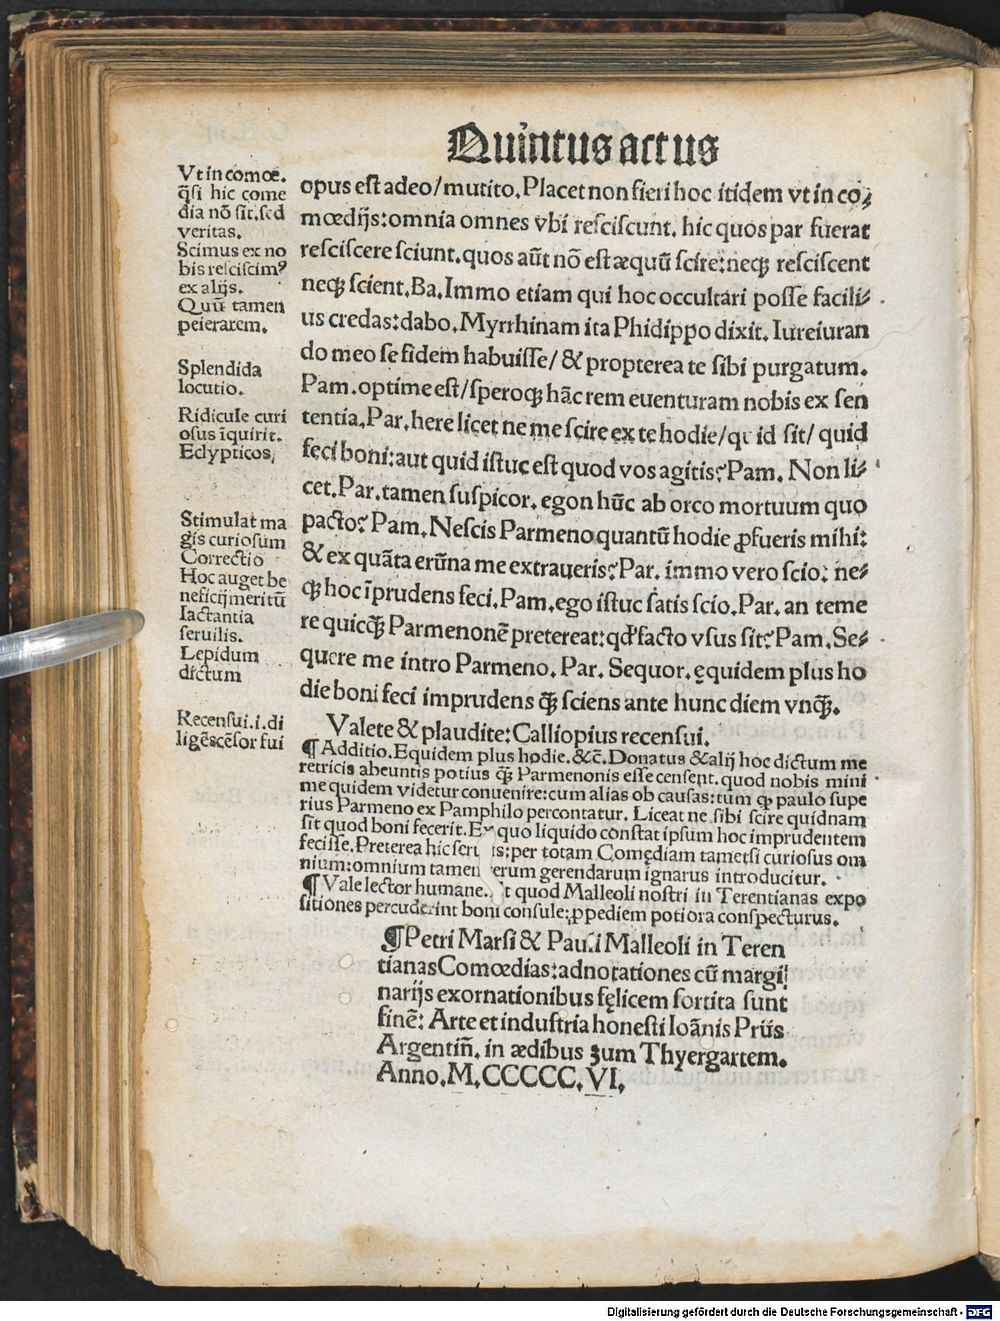 Quintus actus
Vt in comoe.
q̃si hic come
dia nõ sit. sed
veritas.
Scimus ex no
bis resciscimꝰ
ex alijs.
Quũ tamen
peierarem.
Splendida
locutio.
Ridicule curi
osus ĩquirit.
Eclypticos,
Stimulat ma
gis curiosum
Correctio
Hoc auget be
neficij meritũ
Iactantia
seruilis.
Lepidum
dictum
Recensui .i. di
ligẽs cẽsor fui
opus est adeo/mutito. Placet non fieri hoc itidem vt in co⸗
mœdijs: omnia omnes vbi resciscunt. hic quos par fuerat
resciscere sciunt. quos aũt nõ est æquũ scire: neqꝫ rescíscent
neqꝫ scient. Ba. Immo etiam qui hoc occultari posse facili⸗
us credas: dabo. Myrrhinam ita Phidippo dixit. Iureiuran
do meo se fidem habuisse/ & propterea te sibi purgatum.
Pam. optime est/speroqꝫ hãc rem euenturam nobis ex sen
tentia. Par. here licet ne me scire ex te hodie/quid sit/ quid
feci boni: aut quid istuc est quod vos agitis? Pam. Non li⸗
cet. Par. tamen suspicor. egon hũc ab orco mortuum quo
pacto? Pam. Nescis Parmeno quantũ hodie ꝓfueris mihi:
& ex quãta erũna me extraueris? Par. immo vero scio: ne⸗
qꝫ hoc ĩprudens feci. Pam. ego istuc satis scio. Par. an teme
re quicq̃ꝫ Parmenonẽ pretereat: qđ facto vsus sit? Pam. Se⸗
quere me intro Parmeno. Par. Sequor. ęquidem plus ho
die boni feci imprudens q̃ꝫ sciens ante hunc diem vnq̃ꝫ.
Valete & plaudite: Calliopius recensui.
¶ Additio. Equidem plus hodie. &c̃. Donatus & alij hoc dictum me
retricis abeuntis potius q̃ꝫ Parmenonis esse censent. quod nobis mini
me quidem videtur conuenire: cum alias ob causas: tum qꝫ paulo supe
rius Parmeno ex Pamphilo percontatur. Liceat ne sibi scire quidnam
sit quod boni fecerit. Ex quo liquido constat ipsum hoc imprudentem
fecisse. Preterea hic seruus: per totam Comędiam tametsi curiosus om
nium: omnium tamen rerum gerendarum ignarus introducitur.
¶ Vale lector humane. Et quod Malleoli nostri in Terentianas expo
sitiones percuderint boni consule: ꝓpediem potiora conspecturus.
¶ Petri Marsi & Pauli Malleoli in Teren
tianas Comœdias: adnotationes cũ margi
narijs exornationibus fęlicem sortita sunt
finẽ: Arte et industria honesti Ioãnis Prüs
Argentiñ. in ædibus zum Thyergartem.
Anno. M. CCCCC. VI.
Digitalisierung gefördert durch die Deutsche Forschungsgemeinschaft - DFG